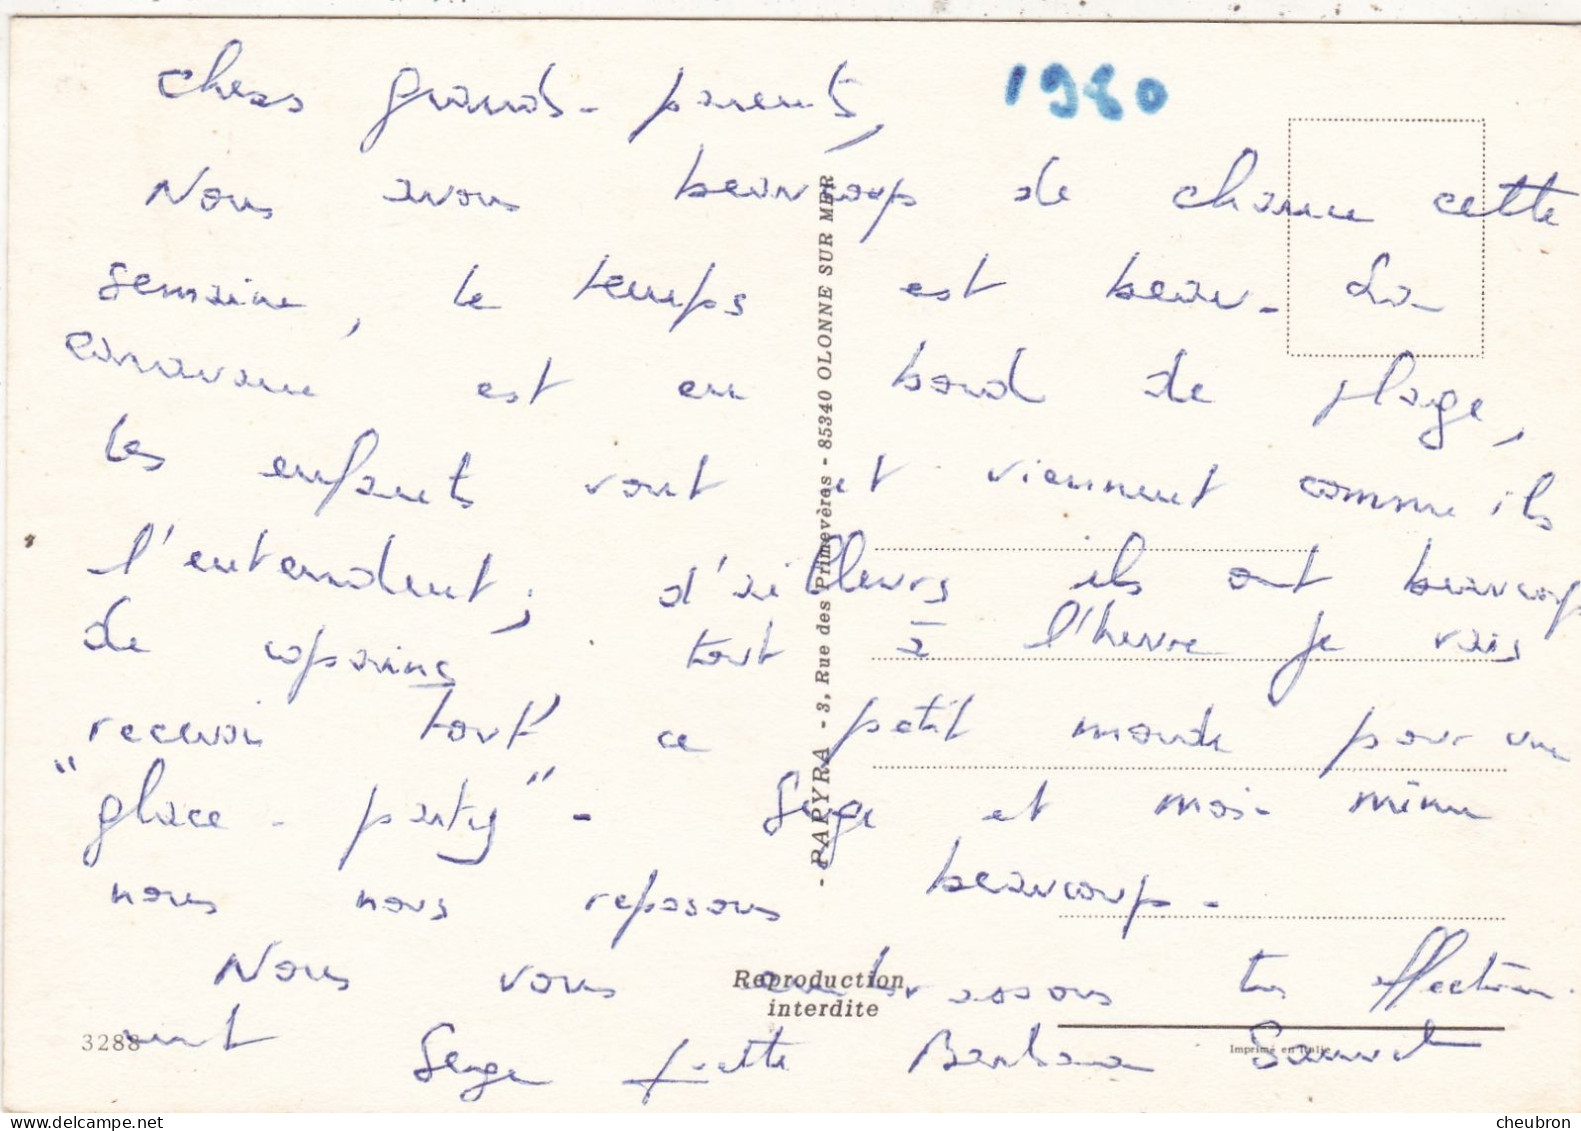 chers grands-parents,
1980
Nous avons beaucoup de chance cette
semaine, le temps est beau - La
caravane est en bord de plage,
les enfants vont et viennent comme ils
l'entendent, d'ailleurs ils ont beaucoup
de copains. tout à l'heure je vais
recevoir tout ce petit monde pour une
"glace-party" - Serge et moi-même
nous nous reposons beaucoup -
Nous vous embrassons très affectueu-
ment
Serge Barbara
- PAPYRA - 3, Rue des Primevères - 85340 OLONNE SUR MER
Reproduction
interdite
3288
Imprimé en Italie
cheubron
delcampe.net